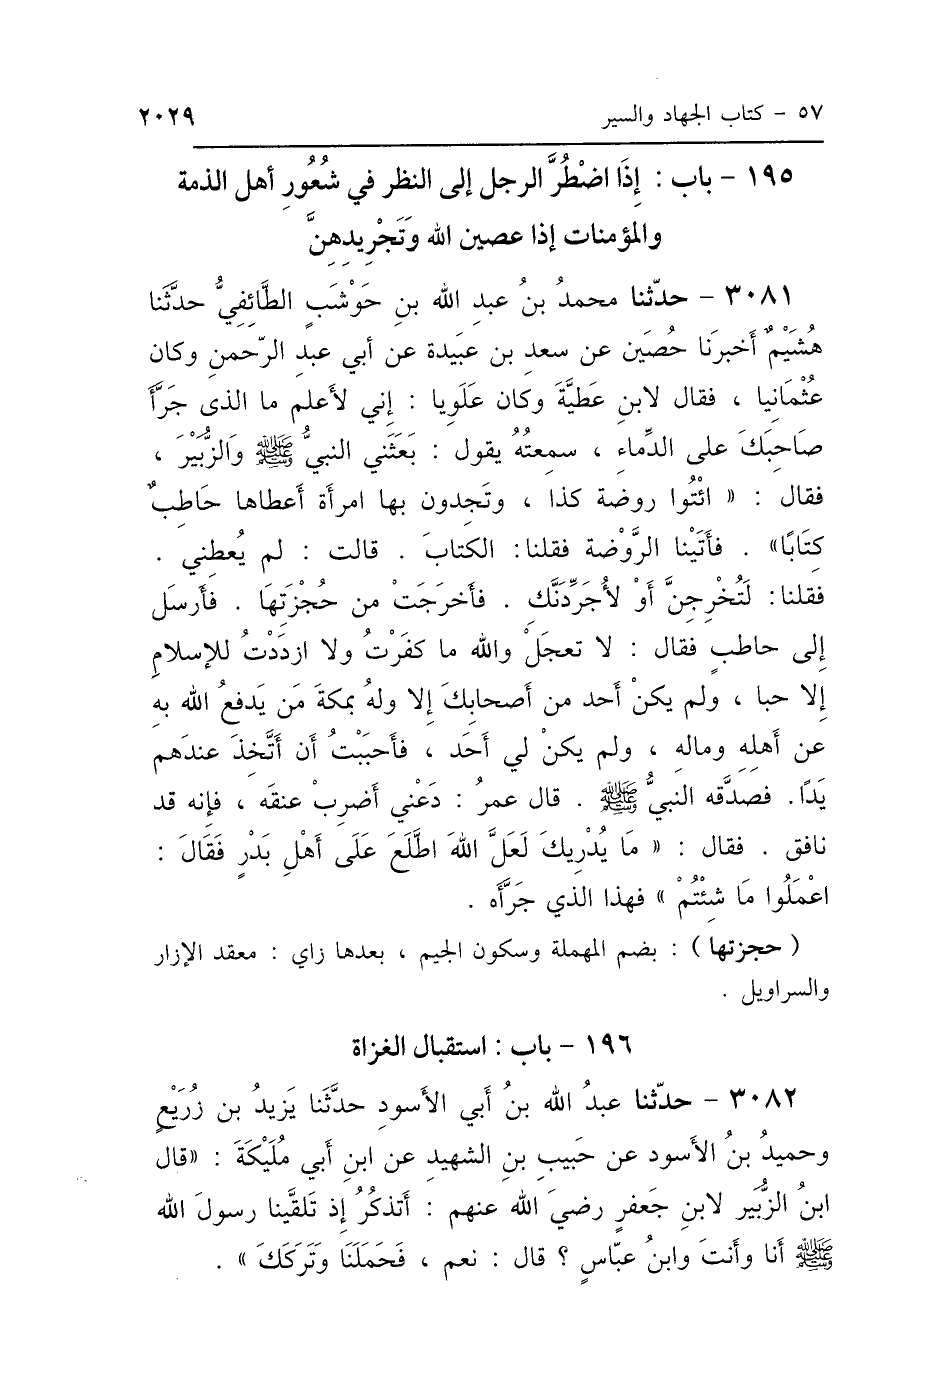 ٥٧ - كتاب الجهاد والسير ٢٠٢٩
١٩٥ - باب : إِذَا اضْطُرَّ الرجل إلى النظر في شُعُورِ أهل الذمة
والمؤمنات إذا عصين الله وَتَجْرِيدِهِنَّ
٣٠٨١ - حدّثنا محمدُ بنُ عبدِ الله بنِ حَوْشَبٍ الطَّائِفِيُّ حدَّثَنا
هُشَيْمٌ أخبرَنا حُصَين عن سعدِ بن عبَيدة عن أبي عبدِ الرّحمنِ وكان
عُثْمَانِيا ، فقال لابنِ عَطيَّةَ وكان عَلَويا : إني لأعلم ما الذى جَرَّأَ
صَاحِبَكَ على الدِّماءِ ، سمعتهُ يقول : بَعَثَني النبيُّ ﷺ وَالزُّبَيْرَ ،
فقال : « ائْتُوا روضة كذا ، وتَجدون بها امرأة أعطاها حَاطِبٌ
كِتَابًا» . فأتَيْنا الرَّوْضة فقلنا: الكتابَ . قالت : لم يُعطِني .
فقلنا: لَتُخْرِجِنَّ أوْ لأُجَرِّدَنَّك . فأخرَجَتْ من حُجْزَتِهَا . فأرسَل
إلى حاطبٍ فقال : لا تعجَلْ والله ما كفَرْتُ ولا ازدَدْتُ للإسلامِ
إلا حبا ، ولم يكنْ أحد من أصحابِكَ إلا ولهُ بمكةَ مَن يَدفعُ الله بهِ
عن أهلهِ ومالهِ ، ولم يكنْ لي أحَد ، فأحبَبْتُ أن أتَّخذَ عندَهم
يَدًا. فصدَّقه النبيُّ ﷺ . قال عمرُ : دَعْني أضرِبْ عنقَه ، فإنه قد
نافق . فقال : « مَا يُدْرِيكَ لَعَلَّ اللهَ اطَّلَعَ عَلَى أهْلِ بَدْرٍ فَقَالَ :
اعْمَلُوا مَا شِئْتُمْ » فهذا الذي جَرَّأه .
( حجزتها ) : بضم المهملة وسكون الجيم ، بعدها زاي : معقد الإزار
والسراويل .
١٩٦ - باب : استقبال الغزاة
٣٠٨٢ - حدّثنا عبدُ الله بنُ أبي الأسودِ حدَّثَنا يَزيدُ بن زُرَيْعٍ
وحميدُ بنُ الأسود عن حَبيبِ بنِ الشهيدِ عن ابنِ أبي مُلَيْكَةَ : «قال
ابنُ الزُّبَير لابنِ جَعفرٍ رضيَ الله عنهم : أتذكُرُ إذ تَلقَّينا رسولَ الله
ﷺ أنا وأنتَ وابنُ عبّاسٍ ؟ قال : نعم ، فَحَمَلَنَا وَتَرَكَكَ » .